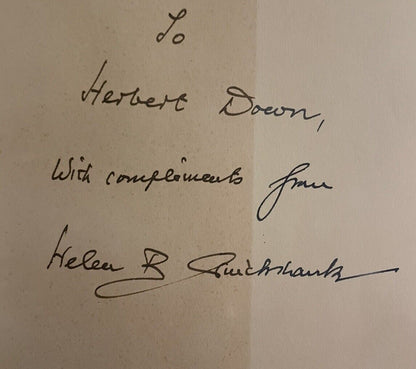 To
Herbert Down,
With compliments from
Helen B Cruickshank